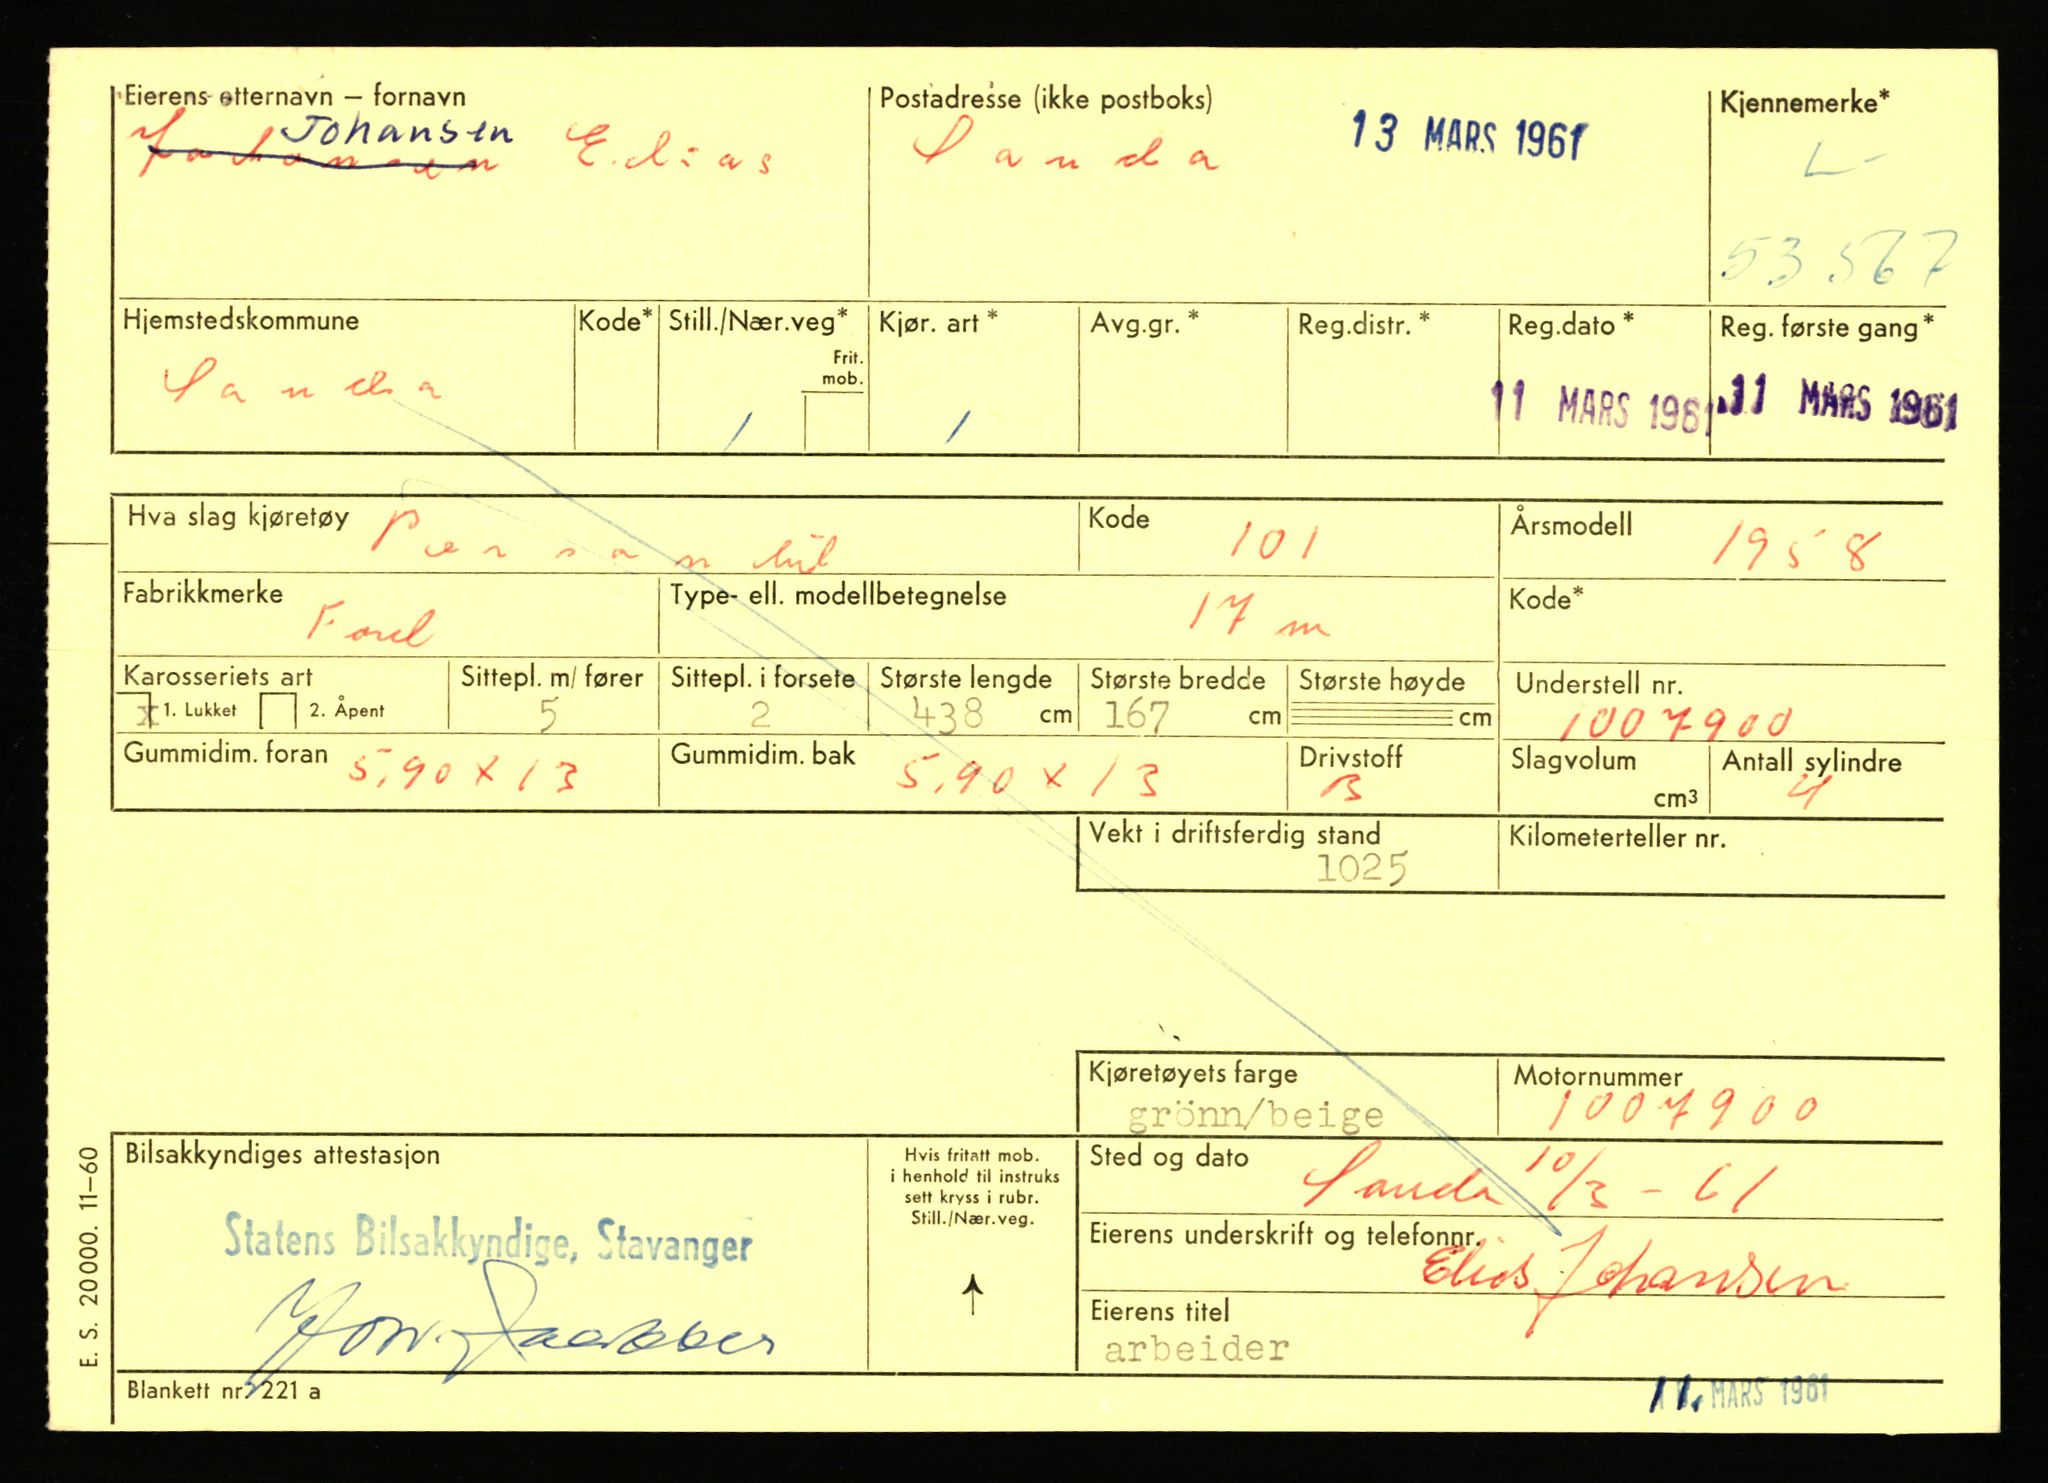 Eierens etternavn – fornavn
Postadresse (ikke postboks)
13 MARS 1961
Kjennemerke*
Johansen
Johansen Elias
Sauda
L-
53567
Hjemstedskommune
Kode*
Still./Nær.veg*
Frit. mob.
Kjør. art *
Avg.gr. *
Reg.distr. *
Reg.dato *
Reg. første gang *
Sauda
1
1
11 MARS 1961
11 MARS 1961
Hva slag kjøretøy Personbil
Kode 101
Årsmodell 1958
Fabrikkmerke Ford
Type- ell. modellbetegnelse 17 m
Kode*
Karosseriets art
x 1. Lukket 2. Åpent
Sittepl. m/ fører
5
Sittepl. i forsete
2
Største lengde
438 cm
Største bredde
167 cm
Største høyde
cm
Understell nr.
1007900
Gummidim. foran 5,90 x 13
Gummidim. bak 5,90 x 13
Drivstoff
B
Slagvolum
cm³
Antall sylindre
4
Vekt i driftsferdig stand
1025
Kilometerteller nr.
Kjøretøyets farge
grönn/beige
Motornummer
1007900
Bilsakkyndiges attestasjon
Statens Bilsakkyndige, Stavanger
Hvis fritatt mob.
i henhold til instruks
sett kryss i rubr.
Still./Nær.veg.
Sted og dato Sauda 10/3 - 61
Eierens underskrift og telefonnr.
Elias Johansen
Eierens titel
arbeider
Blankett nr. 221 a
11. MARS 1961
E. S. 20000. 11–60